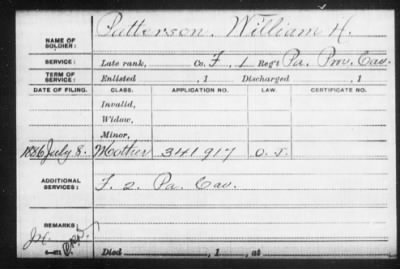 NAME OF SOLDIER: Patterson, William H.
SERVICE: Late rank, Co. F, 1 Reg't Pa. Prov. Cav.
TERM OF SERVICE: Enlisted , 1 Discharged , 1
DATE OF FILING. CLASS. APPLICATION NO. LAW. CERTIFICATE NO.
Invalid,
Widow,
Minor,
1886 July 8. Mother 341.917 O. J.
ADDITIONAL SERVICES: F. 2. Pa Cav.
REMARKS
Died , 1 , at